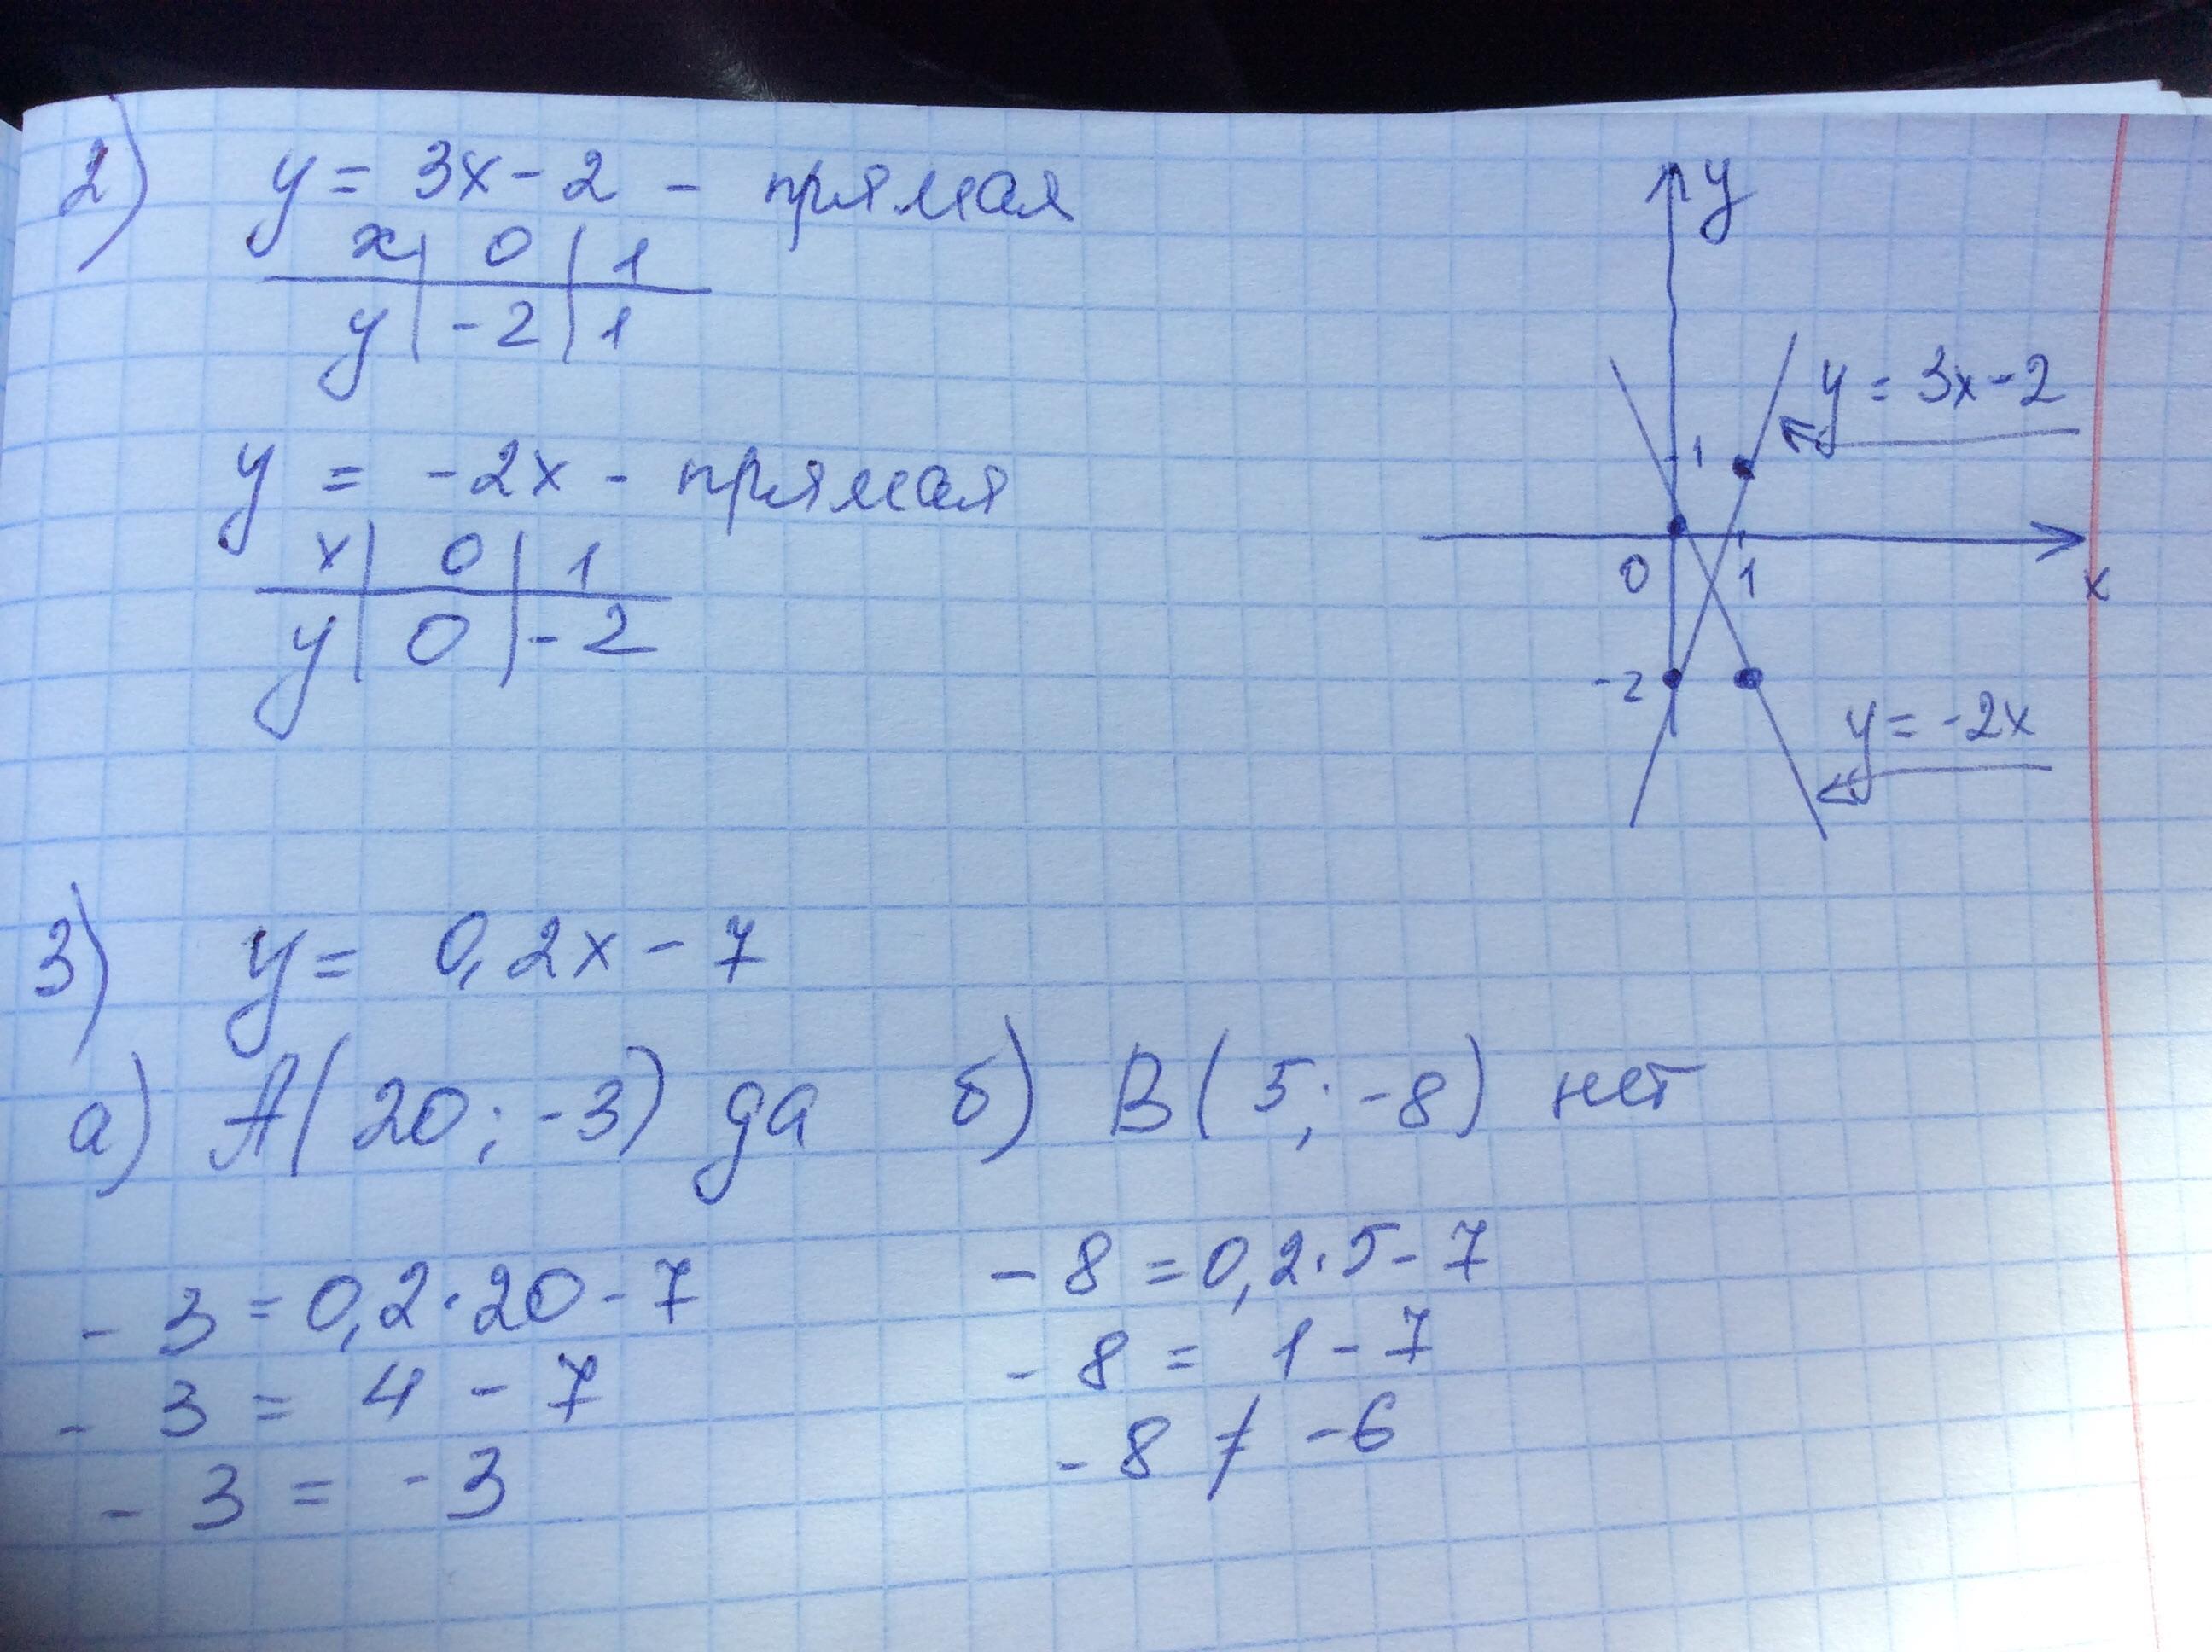 2) y = 3x - 2 - прямая
x | 0 | 1
y | -2 | 1
y = -2x - прямая
x | 0 | 1
y | 0 | -2
y
y = 3x - 2
1
0 1 x
-2
y = -2x
3) y = 0,2x - 7
а) A(20; -3) да б) B(5; -8) нет
-3 = 0,2·20 - 7 -8 = 0,2·5 - 7
-3 = 4 - 7 -8 = 1 - 7
-3 = -3 -8 ≠ -6